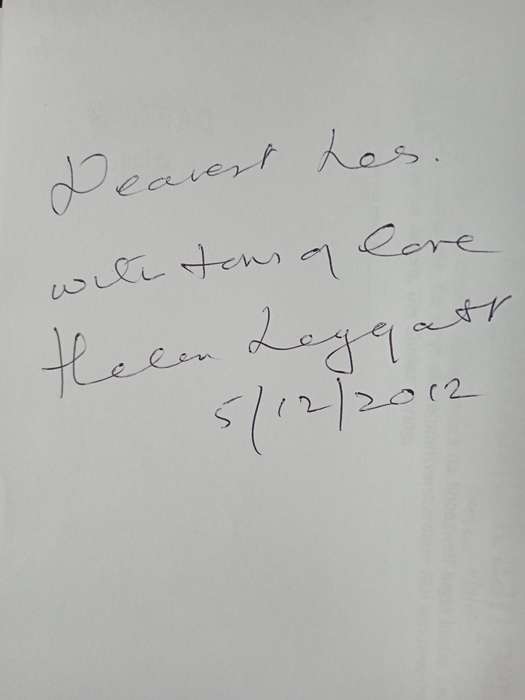 Dearest Les.
with tons of love
Helen Leggatt
5/12/2012